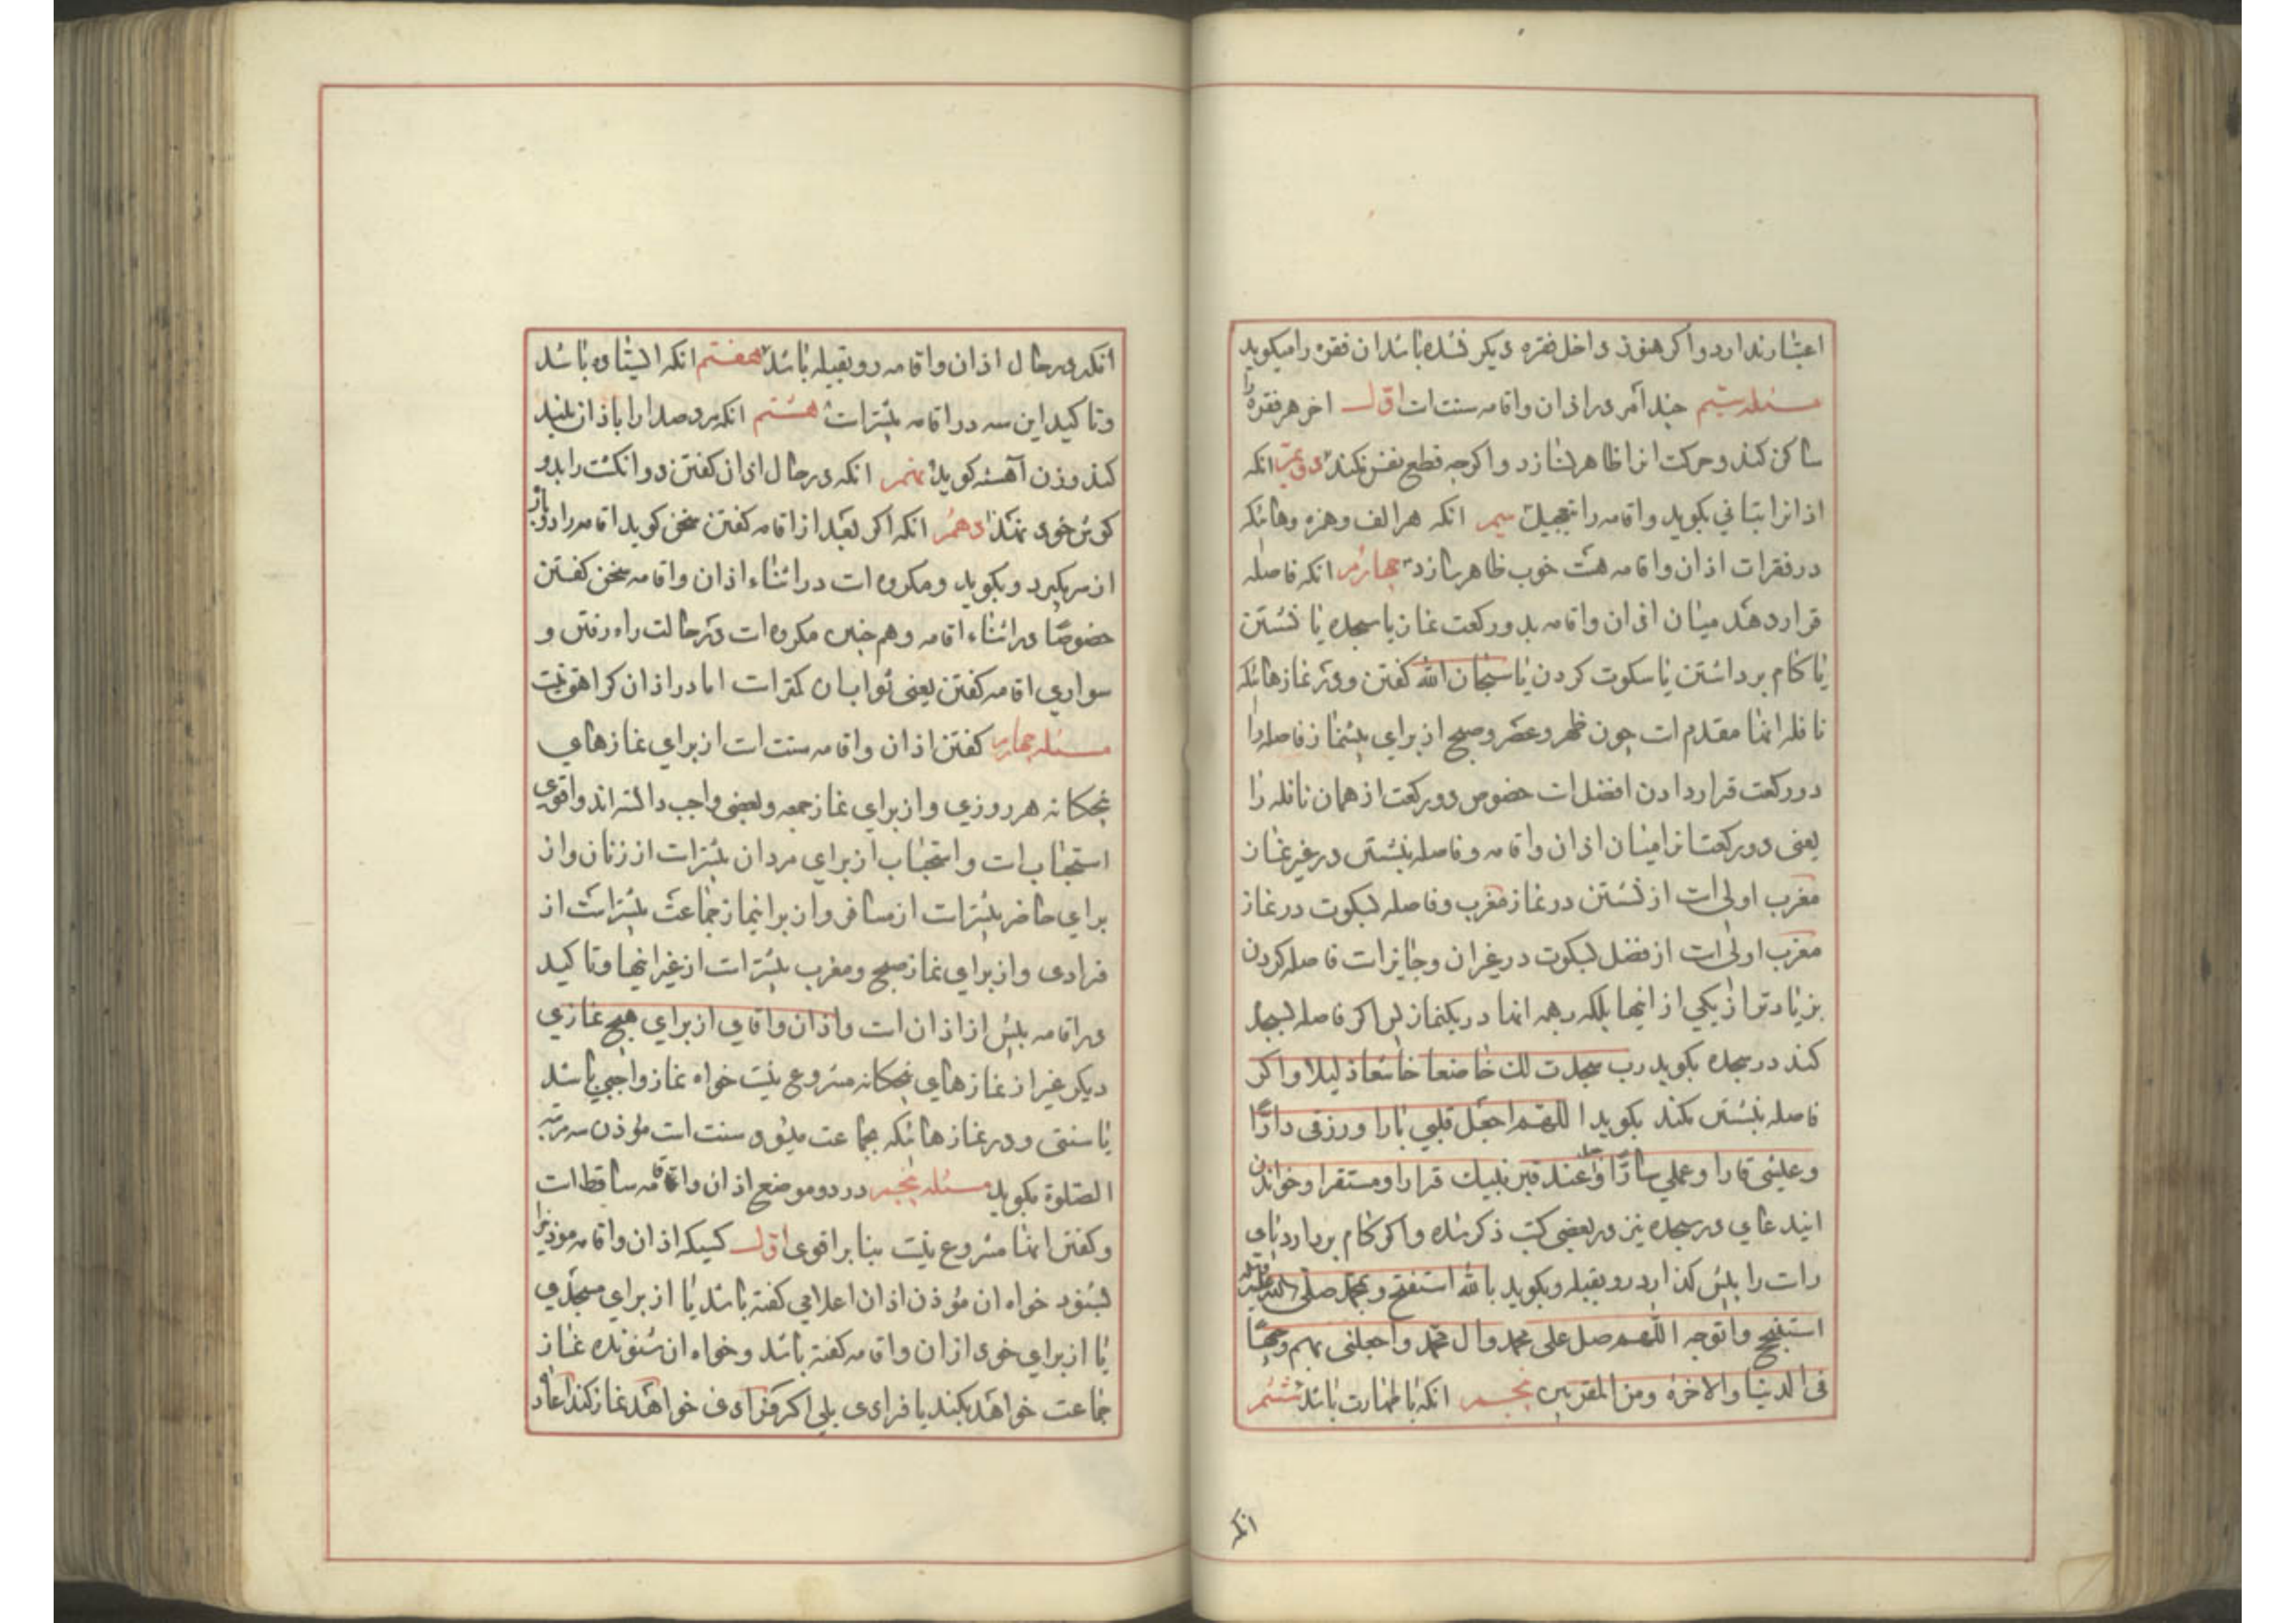 اعتبار ندارد و اگر هنوز داخل فقره دیگر نشده باشد ان فقره را میگوید
مسئله سیم چند امر در اذان و اقامه سنت است اول اخر هر فقره را
ساکن کند و حرکت انرا ظاهر نسازد و اگرچه قطع نفس نکند دویم انکه
اذانرا بتانی بگوید و اقامه را بتعجیل سیم انکه هر الف و همزه و هائیکه
در فقرات اذان و اقامه هست خوب ظاهر سازد چهارم انکه فاصله
قرار دهد میان اذان و اقامه بدو رکعت نماز یا سجده یا نشستن
یا کام برداشتن یا سکوت کردن یا سبحان الله کفتن و در نمازهائیکه
نافله انها مقدم است چون ظهر و عصر و صبح از برای پیشنماز فاصله را
دو رکعت قرار دادن افضل است خصوص دو رکعت از همان نافله را
یعنی دو رکعت انرا میان اذان و اقامه و فاصله بنشستن در غیر نماز
مغرب اولی است از نشستن در نماز مغرب و فاصله بسکوت در نماز
مغرب اولی است از فصل بسکوت در غیر ان و جایز است فاصله کردن
بزیادتر از یکی از اینها بلکه بهمه انها در یکنماز پس اکر فاصله بسجده
کند در سجده بگوید رب سجدت لک خاضعا خاشعا ذلیلا و اکر
فاصله بنشستن بکند بگوید اللهم اجعل قلبی بارا و رزقی دارا
و عیشی قارا و عملی سارا و عند قبر نبیک قرارا و مستقرا و خواندن
ایندعای در سجده نیز در بعضی کتب ذکر شده و اکر کام بردارد پای
راست را پیش کذارد رو بقبله و بگوید بالله استفتح و بمحمد صلی الله علیه و اله
استنجح و اتوجه اللهم صل علی محمد و ال محمد و اجعلنی بهم وجیها
فی الدنیا و الاخرة و من المقربین پنجم انکه با طهارت باشد ششم
انکه
انکه در حال اذان و اقامه رو بقبله باشد هفتم انکه ایستاده باشد
و تاکید این سه در اقامه بیشتر است هشتم انکه مرد صدا را باذان بلند
کند و زن آهسته کوید نهم انکه در حال اذان کفتن دو انکشت را بدو
کوش خود نهد دهم انکه اکر بعد از اقامه کفتن سخن کوید اقامه را دو باز
از سر بکیرد و بکوید و مکروه است در اثناء اذان و اقامه سخن کفتن
خصوصا در اثناء اقامه و هم چنین مکروه است در حالت راه رفتن و
سواری اقامه کفتن یعنی ثواب ان کمتر است اما در اذان کراهتی نیست
مسئله چهارم کفتن اذان و اقامه سنت است از برای نمازهای
پنجکانه هر روزی و از برای نماز جمعه و بعضی واجب دانسته اند و اقوی
استحباب است و استحباب از برای مردان بیشتر است از زنان و از
برای حاضر بیشتر است از مسافر و از براینماز جماعت بیشتر است از
فرادی و از برای نماز صبح و مغرب بیشتر است از غیر اینها و تاکید
در اقامه بیش از اذان است و اذان و اقامه از برای هیچ نمازی
دیکر غیر از نمازهای پنجکانه مشروع نیست خواه نماز واجبی باشد
یا سنتی و در نمازهائیکه بجماعت میشود سنت است مؤذن سه مرتبه
الصلوة بکوید مسئله پنجم در دو موضع اذان و اقامه ساقط است
و کفتن انها مشروع نیست بنا بر اقوی اول کسیکه اذان و اقامه مؤذنرا
بشنود خواه ان مؤذن اذان اعلامی کفته باشد یا از برای مسجدی
یا از برای خود اذان و اقامه کفته باشد و خواه ان شنونده نماز
جماعت خواهد بکند یا فرادی بلی اکر فرادی خواهد نماز کند